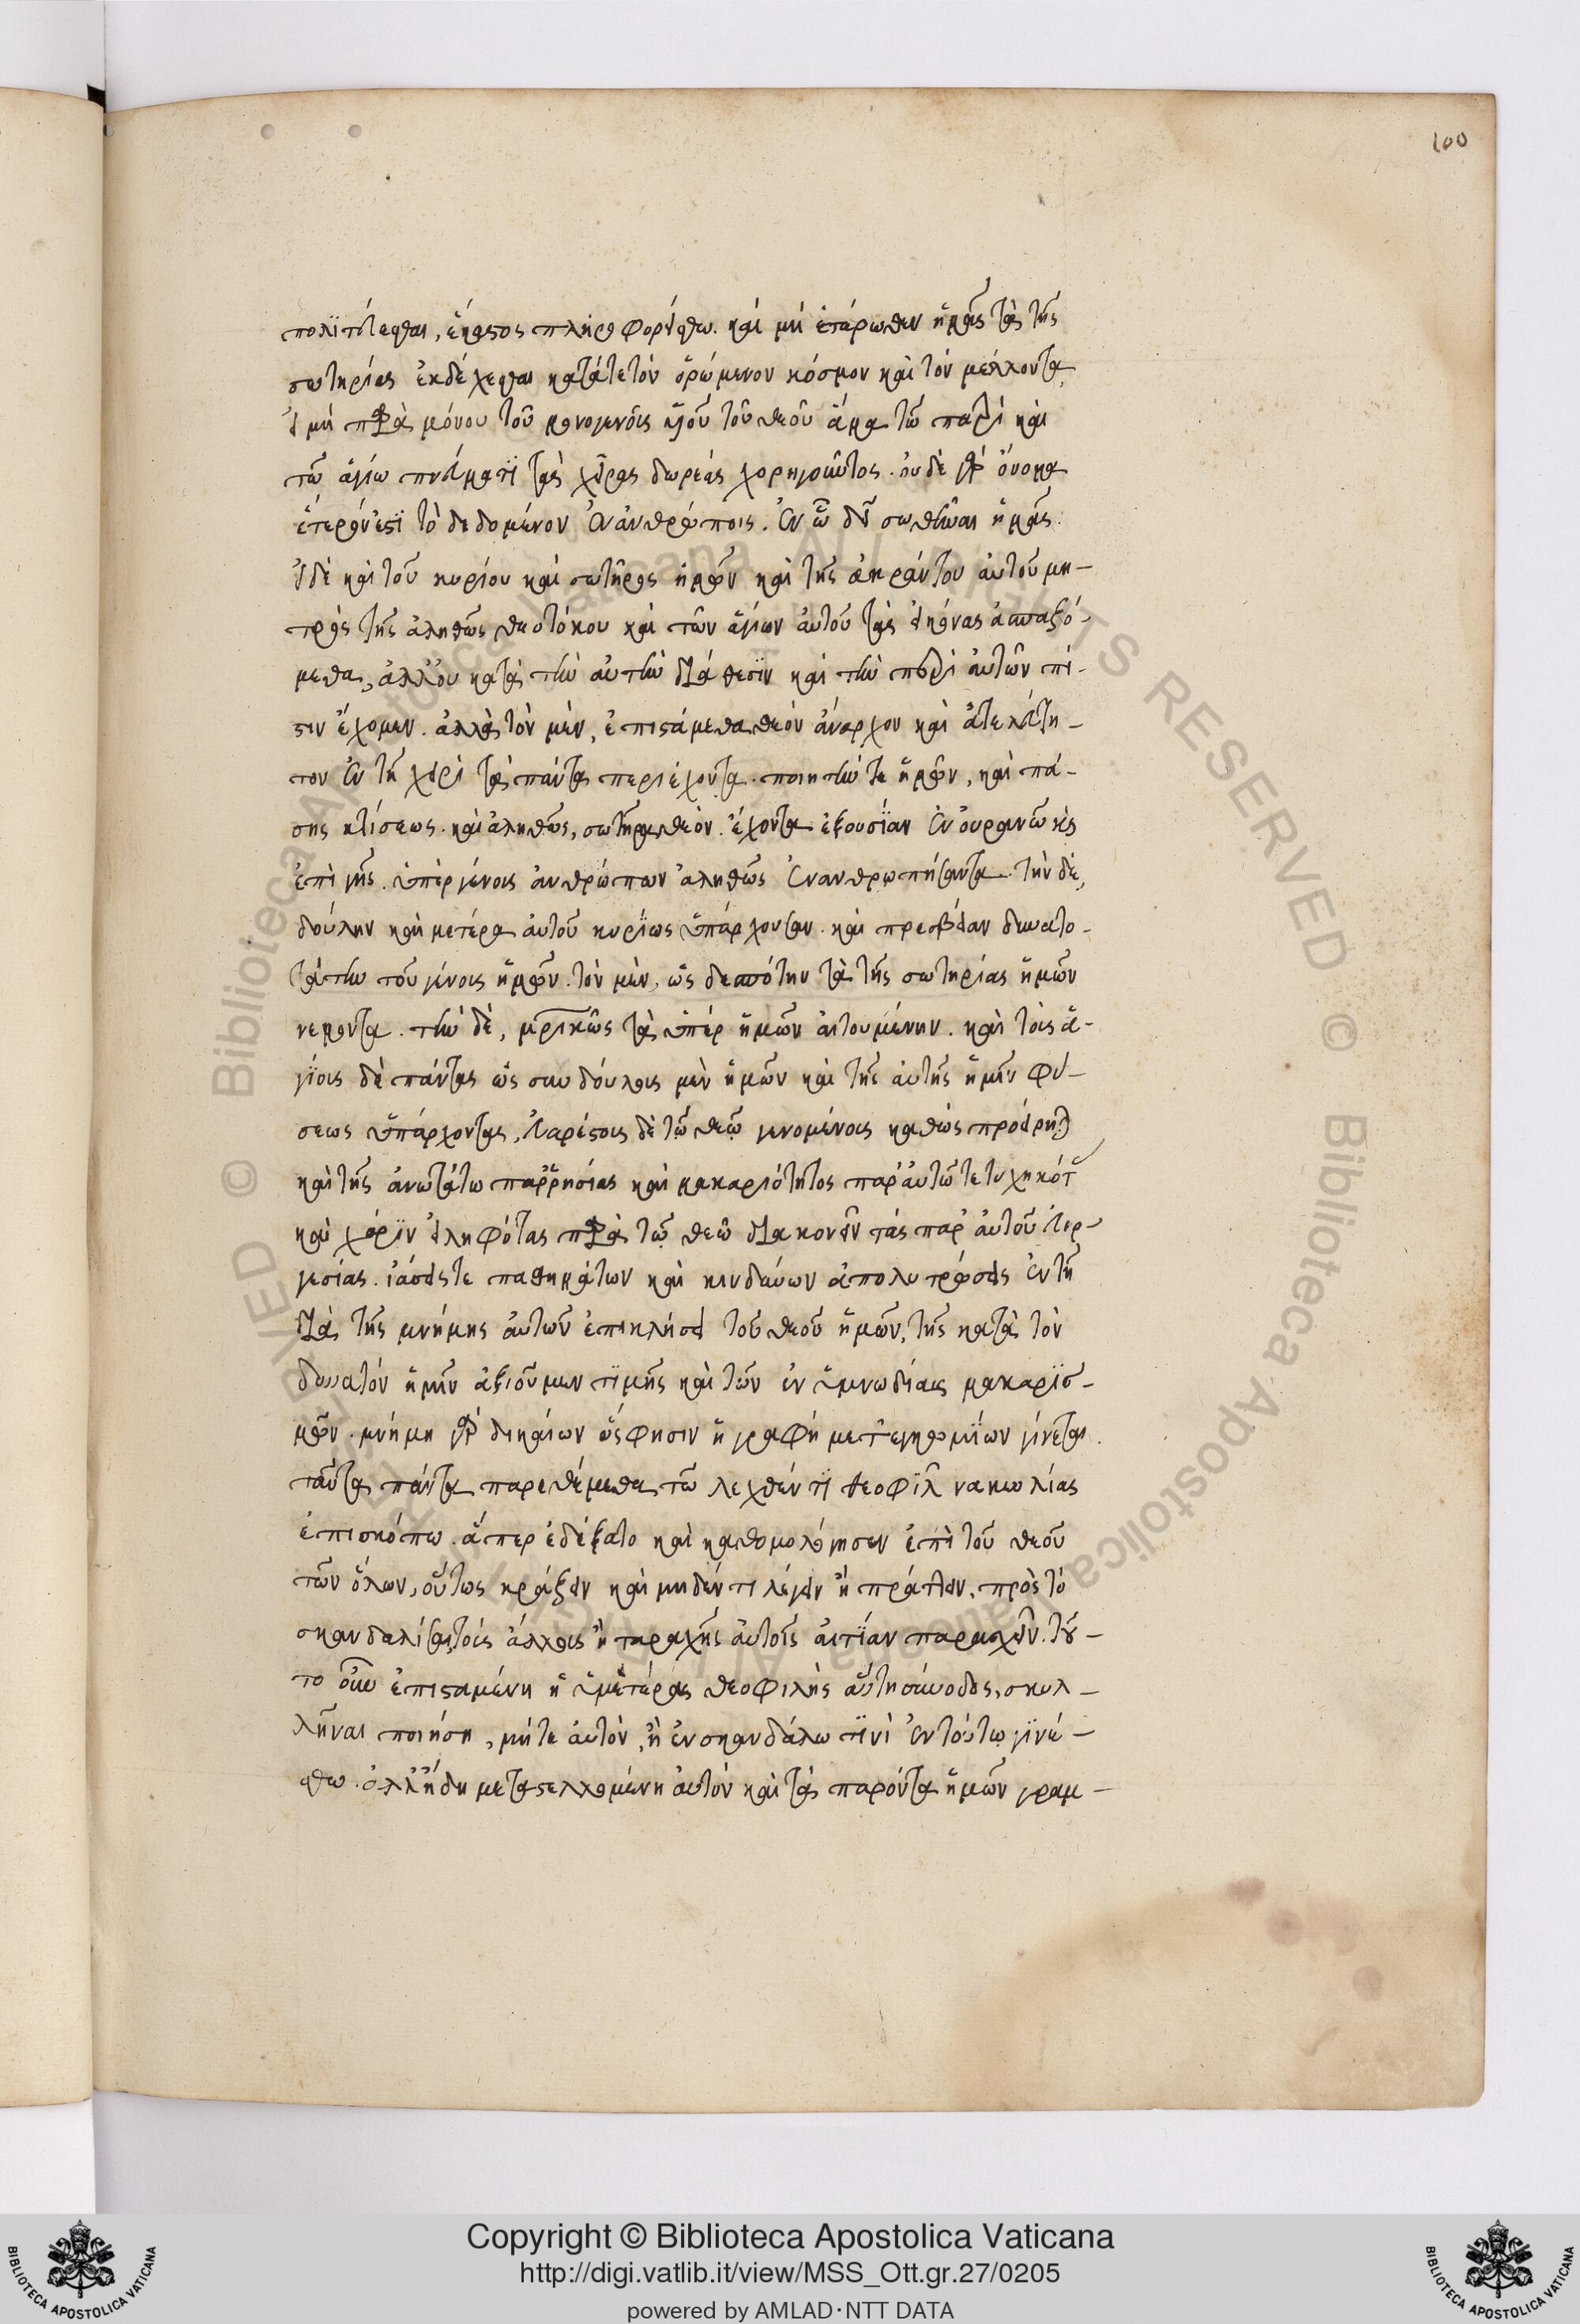 100
πολϊτέυεσθαι, ἕκαστος πληροφορείσθω. καὶ μὴ ἑτέρωθεν ἡμᾶς τὰ τῆς
σωτηρίας ἐκδέχεσθαι κατά τε τὸν ὁρώμενον κόσμον καὶ τὸν μέλλοντα,
εἰ μὴ παρὰ μόνου τοῦ μονογενοῦς υἱοῦ τοῦ θεοῦ ἅμα τῶ πατρὶ καὶ
τῶ ἁγίω πνεύματϊ τὰς χεῖρας δωρεάς χορηγοῦντος. ουδὲ γὰρ ὄνομα
ἕτερόν ἐστϊ τὸ δεδομένον ἐν ἀνθρώποις. ἐν ὧ δεῖ σωθῆναι ἡμᾶς.
εἰ δὲ καὶ τοῦ κυρίου καὶ σωτῆρος ἡμῶν καὶ τῆς ἀχράντου αὐτοῦ μη-
τρὸς τῆς ἀληθῶς θεοτόκου καὶ τῶν ἁγίων αὐτοῦ τὰς εἰκόνας ἀσπαζό-
μεθα, ἀλλ' οὐ κατὰ τὴν αὐτὴν διάθεσϊν καὶ τὴν περὶ αὐτῶν πί-
στιν ἔχομεν. ἀλλὰ τὸν μὲν, ἐπιστάμεθα θεὸν ἄναρχον καὶ ἀτελεύτη-
τον ἐν τῆ χειρὶ τὰ πάντα περιέχοντα. ποιητήν τε ἡμῶν, καὶ πά-
σης κτίσεως. καὶ ἀληθῶς, σωτῆρα θεὸν. ἔχοντα ἐξουσίαν ἐν οὐρανῶ καὶ
ἐπὶ γῆς. ὑπὲρ γένους ἀνθρώπων ἀληθῶς ἐνανθρωπήσαντα. τὴν δὲ,
δούλην καὶ μετέρα αὐτοῦ κυρϊως ὑπάρχουσαν. καὶ πρεσβείαν δυνατο-
τάτην τοῦ γένους ἡμῶν. τὸν μὲν, ὡς δεσπότην τὰ τῆς σωτηρίας ἡμῶν
νεμοντα. τὴν δὲ, μητρικῶς τὰ ὑπὲρ ἡμῶν αἰτουμένην. καὶ τοὺς ἁ-
γίους δὲ πάντας ὡς συνδούλους μὲν ἡμῶν καὶ τῆς αὐτῆς ἡμῖν φύ-
σεως ὑπάρχοντας, εὐαρέστους δὲ τῶ θεῶ γενομένους καθὼς προείρηται
καὶ τῆς ἀνωτάτω παρρησίας καὶ μακαριότητος παρ' αὐτῶ τετυχηκότας
καὶ χάρϊν εἰληφότας παρὰ τῶ θεῶ διακονεῖν τὰς παρ' αὐτοῦ εὐερ-
γεσίας. ἰάσεις τε παθημάτων καὶ κινδύνων ἀπολυτρώσεις ἐν τῆ
διὰ τῆς μνήμης αὐτῶν ἐπικλήσει τοῦ θεοῦ ἡμῶν, τῆς κατὰ τὸν
δυνατόν ἡμῖν ἀξιοῦμεν τϊμῆς καὶ τῶν ἐν ὑμνωδίαις μακαρϊσ-
μῶν. μνήμη γὰρ δικαίων ὥς φησιν ἡ γραφή μετ' εγκωμϊων γίνεται.
ταῦτα πάντα παρεθέμεθα τῶ λεχθέντϊ θεοφϊλ νακωλίας
ἐπισκόπω. ἅπερ ἐδέξατο καὶ καθομολόγησεν ἐπὶ τοῦ θεοῦ
τῶν ὅλων, οὕτως πράξειν καὶ μηδέν τι λέγειν ἢ πράττειν, πρὸς τὸ
σκανδαλίσαι τοὺς ἄλλους ἢ ταραχῆς αὐτοῖς αἰτϊαν παρασχεῖν. τοῦ-
το οὖν ἐπισταμένη ἡ ὑμετέρας θεοφιλὴς αὕτη σύνοδος, σκυλ-
λῆναι ποιήση, μήτε αὐτὸν, ἢ ἐν σκανδάλω τϊνὶ ἐν τούτω γϊνέ-
σθω. ἀλλ' ἤδη μεταστελλομένη αὐτὸν καὶ τὰ παρόντα ἡμῶν γραμ-
Copyright © Biblioteca Apostolica Vaticana
http://digi.vatlib.it/view/MSS_Ott.gr.27/0205
powered by AMLAD·NTT DATA